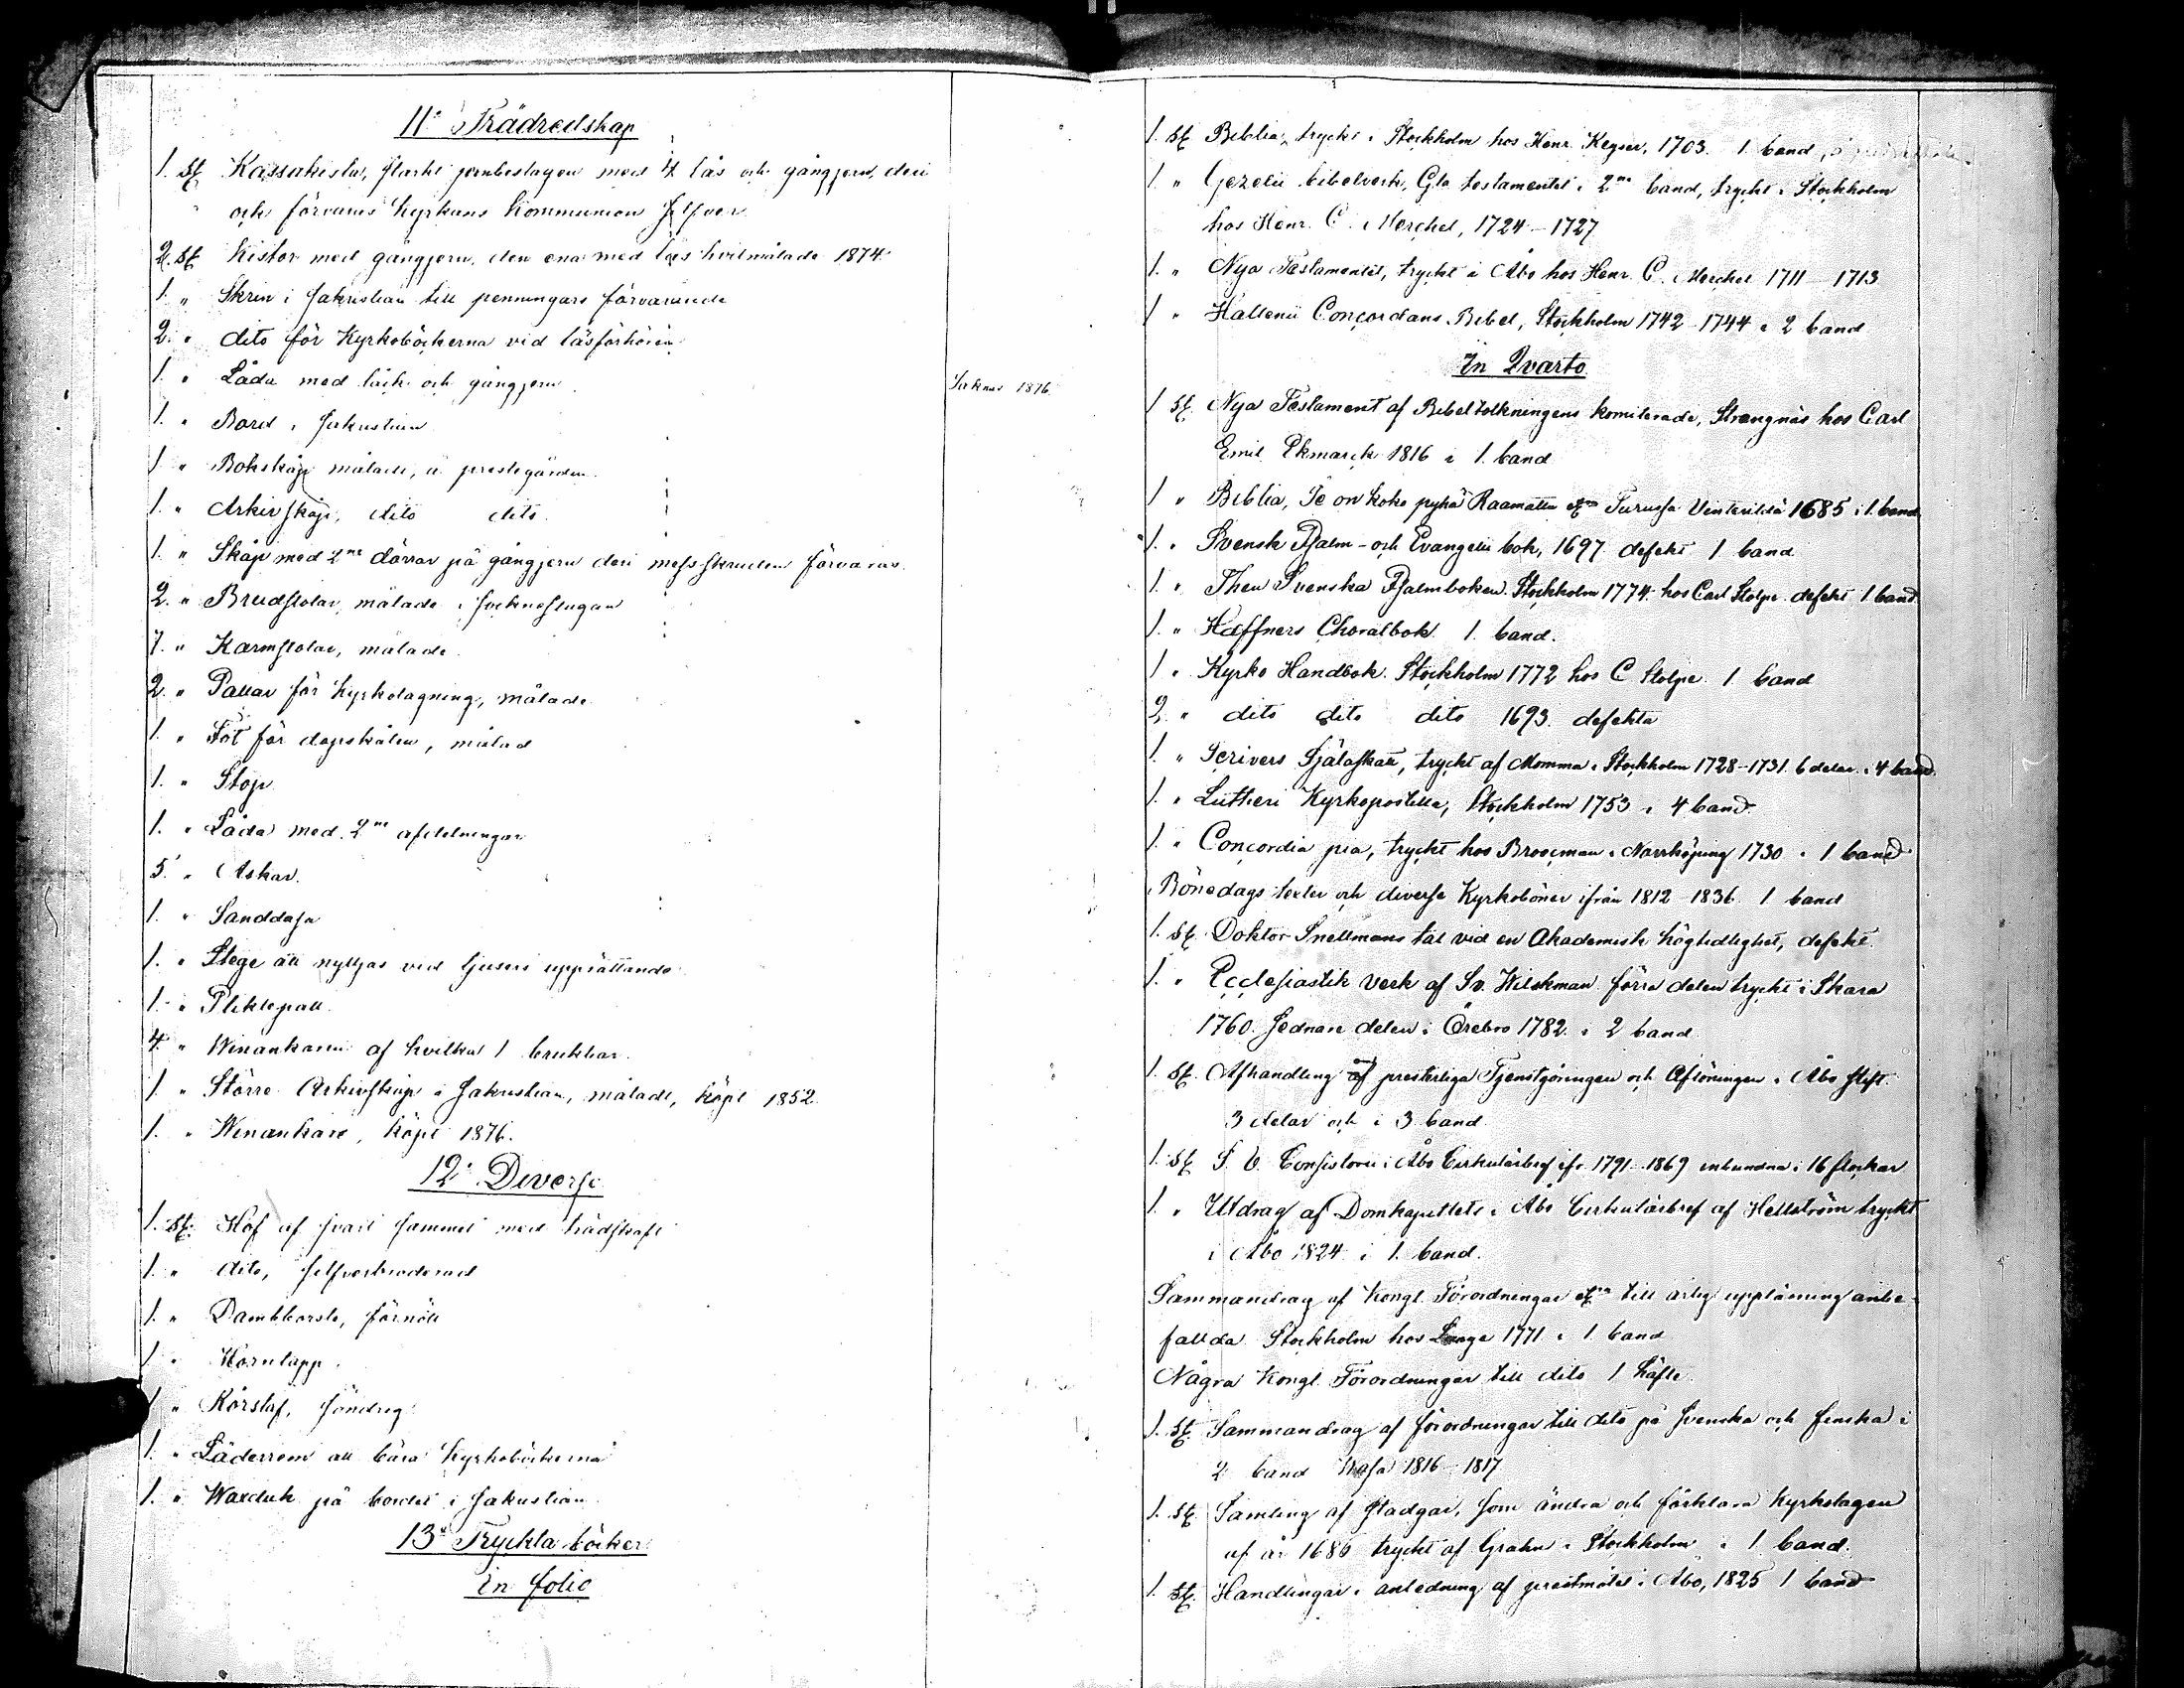 11º Trädredskap
1. st. Kassakista, starkt jernbeslagen med 4 lås och gångjern, deri
och förvaras kyrkans kommunion silfver
2. st. Kistor med gångjern, den ena med lås hvitmålade 1874.
1. " Skrin i sakristian till penningars förvarande
2. " dito för Kyrkoböckerna vid läsförhören
1. " Låda med lås och gångjern
Saknas 1876.
1. " Bord i sakristian
1. " Bokskåp målade, å prestegården.
1. " Arkivskåp, dito dito.
1. " Skåp med 2ne dörrar på gångjern deri messskruden förvaras.
2. " Brudstolar, målade i sockenstugan
7. " Karmstolar, målade.
2. " Pallar för kyrkotagning, målade
1. " Fot för dopskålen, målad
1. " Stop
1. " Låda med 2ne afdelningar
5. " Askar.
1. " Sanddosa
1. " Stege att nyttjas vid ljusens upprättande
1. " Pliktepall.
4. " Winankaren af hvilka 1 brukbar.
1. " Större Arkivskåp i sakristian, målade, köpt 1852.
1. " Winankare, köpt 1876.
12º Diverse
1. st. Håf af svart sammet med trädskaft
1. " dito, silfverbroderad
1. " Dammborste, förnött
1. " Hornlapp.
1. " Rörstaf, söndrig
1. " Läderrem att bära kyrkoböckerna
1. " Waxduk på bordet i sakristian
13º Tryckta böcker
In folio
1. st. Biblia, tryckt i Stockholm hos Henr. Keyser, 1703. 1. band
1 " Gezelii bibelverk, Gla testamentet i 2ne band, tryckt i Stockholm
hos Henr. C. Merckel, 1724-1727
1. " Nya Testamentet, tryckt i Åbo hos Henr. C. Merckel 1711-1713
1 " Hallenii Concordans Bibel, Stockholm 1742-1744 i 2 band
In Qvarto
1 st. Nya Testament af Bibeltolkningens komiterade, Strengnäs hos Carl
Emil Ekmarck 1816 i 1. band
1 " Biblia, Se on koko pyhä Raamattu etc Turussa Vinterildä 1685 i 1. band
1. " Svensk Psalm- och Evangelii bok, 1697 defekt 1 band
1. " Then Svenska Psalmboken. Stockholm 1774. hos Carl Stolpe defekt 1 band.
1. " Haffners Choralbok 1. band.
1 " Kyrko Handbok. Stockholm 1772 hos C Stolpe 1. band
2. " dito dito dito 1693. defekta
1. " Scrivers Själaskatt, tryckt af Momma i Stockholm 1728-1731. 6 delar i 4 band.
1. " Lutheri Kyrkopostilla, Stockholm 1753 i 4 band.
1. " Concordia pia, tryckt hos Broocman i Norrköping 1730 i 1 band
Bönedags texter och diverse Kyrkoböner ifrån 1812-1836. 1 band
1. st. Doktor Snellmans tal vid en Akademisk högtidlighet, defekt.
1. " Ecclesiastik verk af Sv. Wilskman förra delen tryckt i Skara
1760. Sednare delen i Örebro 1782. i 2 band
1. st. Afhandling om presterliga Tjenstgöringen och Aflöningen i Åbo stift.
3 delar och i 3. band.
1. st. S. V. Consistorii i Åbo Cirkulärbref ifr. 1791-1869 inbundna i 16 stockar
1. " Utdrag af Domkapitlets i Åbo Cirkulärbref af Hellström tryckt
i Åbo 1824 i 1. band.
Sammandrag af Kongl. Förordningar etc till årlig uppläsning anbe-
fallda Stockholm hos Lange 1771 i 1. band
Några Kongl. Förordningar till dito 1 häfte
1. st. Sammandrag af förordningar till dito på Svenska och finska i
2 band Wasa 1816-1817
1. st. Samling af Stadgar, som ändra och förklara kyrkolagen
af år 1686 tryckt af Grahn i Stockholm i 1 band.
1. st. Handlingar i anledning af prestmötet i Åbo, 1825 1 band